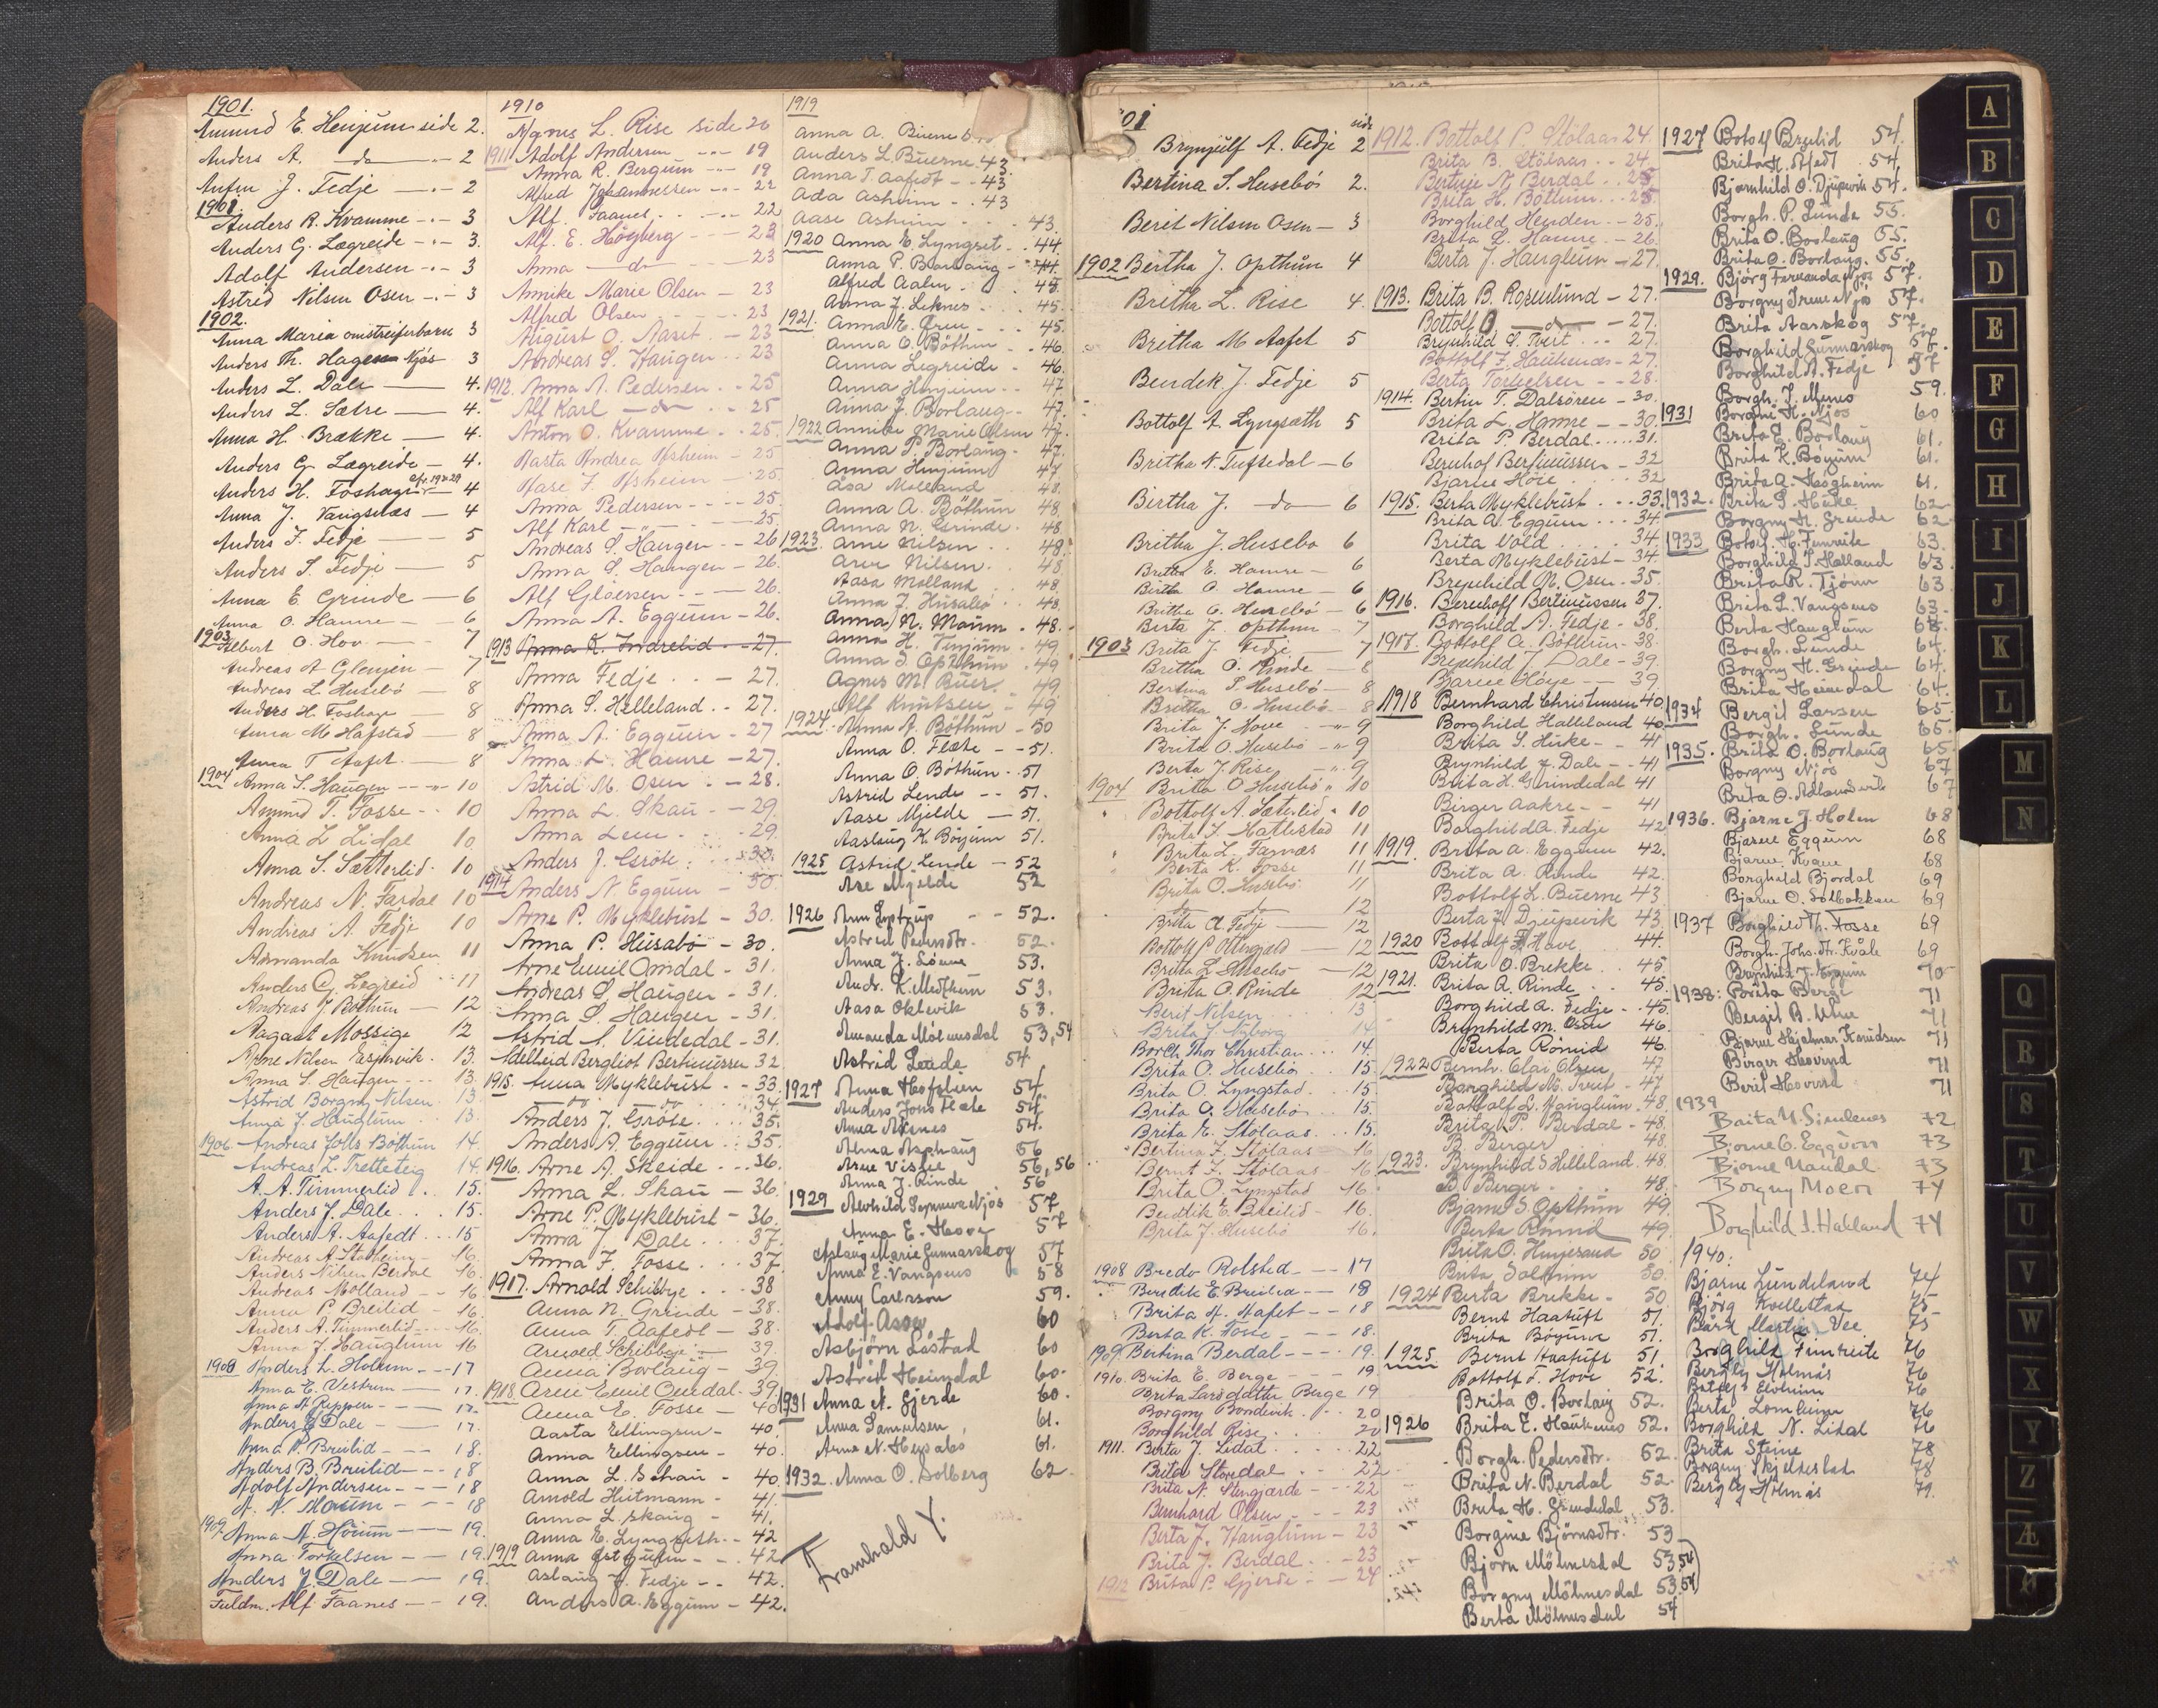 1901.
Amund E. Henjum side 2.
Anders A. — do — 2
Anfin J. Fedje — 2
1901.
Anders R. Kvamme — 3
Anders G. Lægreide — 3.
Adolf Andersen — 3
Astrid Nilsen Osen — 3
1902.
Anna Maria omstreiferbarn 3
Anders Th. Hagen Njøs 3
Anders L. Dale — 4.
Anders L. Sætre — 4.
Anna H. Brække — 4.
Anders G. Lægreide — 4.
Anders H. Foshagen — 4
Anna J. Vangsnæs — 4
Anders J. Fedje — 5
Anders S. Fedje — 5
Anna E. Grinde — 6
Anna O. Hamre — 6
1903
Albert O. Hov — 7
Andreas A. Glenjen — 7
Andreas L. Husebö — 8
Anders H. Foshage — 8
Anna M. Hafstad — 8
Anna T. Aafet — 8
1904 Anna S. Haugen — 10
Amund T. Fosse — 10
Anna L. Lidal 10
Anna S. Sætterlid 10
Andreas N. Fardal 10
Andreas A. Fedje 10
Amanda Knudsen 11
Anders G. Legreid 11
Andreas J. Bothun — 12
Aagaat Mossige 12
Arne Nilsen 13.
Anna S. Haugen 13.
Astrid Borgny Nilsen 13
Anna J. Hauglum 13
1906 Andreas Bøthun 14
Andreas L. Tretteteig 14
A. A. Timmerlid 15.
Anders J. Dale 15.
Anders A. Aafedt 15
Andreas A. 16.
Anders Nilsen Berdal 16.
Andreas Molland 16
Anna P. Breilid 16.
Anders A. Timmerlid 16.
Anna J. Hauglum 16
1908 Anders L. Holum — 17
Anna E. Vestrum 17.
Anna A. 17.
Anders J. Dale — 17.
Anna P. Breilid — 18.
Anders B. Breilid — 18
Adolf Andersen — 18
A. N. Maum — 18
1909 Anna A. Hörum — 19.
Anna Torkelsen — 19.
Anders J. Dale — 19.
Fuldm. Alf Faanes — 19.
1910
Agnes L. Rise side 20
1911 Adolf Andersen — 19
Anna R. Bergum — 19
Alfred Johannessen — 22
Alf. Faanes — 22
Alf. E. Högberg — 23
Anna — do — 23
Annike Marie Olsen — 23
Alfred Olsen — 23
August O. Aaset — 23
Andreas S. Haugen — 23
1912. Anna A. Pedersen — 25
Alf Karl — do — 25
Anton O. Kvamme — 25
Aasta Andrea Asheim — 25
Aase F. Asheim — 25
Anna Pedersen — 25
Alf Karl — 25.
Andreas S. Haugen — 26
Anna S. Haugen — 26.
Alf Gloersen — 26.
Anna A. Eggum — 26.
1913 Anna K. Indrelid — 27.
Anna Fedje — 27.
Anna S. Helleland — 27.
Anna A. Eggum — 27
Anna L. Hamre — 27.
Astrid M. Osen — 28.
Anna L. Skau — 29.
Anna Leen — 29.
Anders J. Gröte — 30.
1914 Anders N. Eggum — 30
Arne P. Myklebust — 30.
Anna P. Husabö — 30.
Arne Emil Omdal — 31.
Andreas S. Haugen — 31.
Anna S. Haugen — 31.
Astrid S. Vindedal — 31.
Adelheid Bergliot Bertinussen 32
1915. Anna Myklebust — 33.
do. do. 34
Anders J. Gröte — 35.
Anders A. Eggum — 35.
1916. Arne A. Skeide — 36.
Anna L. Skau — 36.
Arne P. Myklebust — 36
Anna J. Dale — 37.
Anna F. Fosse — 37
1917. Arnold Schibbye — 38
Anna N. Grinde — 38.
Anna T. Aafedt — 38.
Arnold Schibbye — 39.
Anna Borlaug — 39
1918. Arne Emil Omdal — 39.
Anna E. Fosse — 40
Aasta Ellingsen — 40.
Anna Ellingsen — 40.
Anna L. Schau — 40.
Arnold Huitmann — 41.
Anna L. Skaug — 41.
Anna E. Lyngseth — 42
1919 Anna — 42.
Aslaug J. Fedje — 42.
Anders A. Eggum — 42.
1919
Anna A. Buerne
Anders L. Buerne 43.
Anna T. Aafedt — 43
Ada Asheim — 43
Aase Asheim — 43.
1920 Anna E. Lyngset — 44.
Anna P. Borlaug — 44.
Alfred Aalen — 45
Anna J. Leknes — 45.
1921. Anna E. Øren — 45.
Anna O. Böthun — 46.
Anna Legreide — 46.
Anna Henjum — 47
Anna J. Borlaug — 47.
1922 Annike Marie Olsen 47.
Anna P. Borlaug — 47.
Anna Henjum 47
Åsa Molland 48.
Anna A. Böthun 48.
Anna N. Grinde. 48
1923. Arne Nilsen 48.
Arne Nilsen. 48
Aasa Molland 48.
Anna J. Husabö 48.
Anna N. Maum — 48.
Anna H. Vinjum 49
Anna S. Opthun 49
Agnes M. Buer 49
Alf Knutsen 49
1924 Anna A. Böthun — 50
Anna O. Flæte — 51.
Anna O. Böthun — 51
Astrid Lende — 51.
Aase Mjelde — 51.
Aaslaug K. Böyum 51.
1925 Astrid Lende — 52
Are Mjelde 52
1926 52.
Astrid Pedersdtr. 52.
Anna J. 53.
Andr. K. Mestheim 53.
Aasa Oklevik 53.
Amanda Mölmesdal 53,54
Astrid Lende 54
1927 Anna Hofslien 54.
Anders Johs Flæte 54.
Anna Axenes 54.
Alma Asphaug 56
Arne Visnee 56, 56
Anna J. Rinde 56
1929 Arnhild Synneva Njøs 57
Anna E. Hove 57
Aslaug Marie Gunnarskog 57
Anna E. Vangsnes 58
Anny Carlsson 59.
Adolf Assev 60
Asbjörn Låstad 60
Astrid Heimdal 60.
1931 Anna N. Gjerde 60.
Anna Samuelsen 61.
Arne N. Husabö 61.
1932. Anna O. Solberg 62.
Framhald Y.
side
Brynjulf A. Fedje 2
Bertina S. Husebö 2.
Berit Nilsen Osen — 3
1902 Bertha J. Opthun 4
Britha L. Rise 4.
Britha M Aafet 5
Bendik J. Fedje 5
Bottolf A. Lyngsæth 5
Britha N. Tuftedal — 6
Bertha J. — do — 6
Britha J. Husebo 6
Britha E. Hamre — 6
Britha O. Hamre — 6
Britha O. Husebö — 6
Berta J. Opthun — 7
1903 Brita J. Fedje 7
Britha O. Rinde — 8
Bertina S. Husebö — 8
Britha O. Husebö — 8
Brita J. Hove — 9
Brita O. Husebö — 9
Berta J. Rise — 9
1904 Brita O Husebö 10
Bottolf A. Sæterlid 10
Brita S. Hatlestad 11
Brita L. Farnæs 11
Berta K. Fosse 11
Brita O. Husebö 11
do do 12
Brita A. Fedje — 12
Bottolf P. Ottesgjeld — 12
Brita L. Husebö — 12
Britta O. Rinde 12
Berit Nilsen 13
Brita J. Nyborg 14
Borch Thor Christian 14.
Brita O. Husebö 15.
Brita O. Lyngstad 15.
Brita O. Husebö 15.
Brita E. Stölaas 15.
Bertina J. Stölaas 16
Bernt J. Stölaas 16
Brita O. Lyngstad 16.
Bendik E. Breilid 16.
Brita J. Husebö 16.
1908 Bredo Rolsted — 17
Bendik E. Breilid — 18
Brita A. Aafet — 18
Berta K. Fosse — 18.
1909 Bertina Berdal — 19.
1910. Brita E. Berge — 19
Brita Larsdatter Berge 19
Borgny Bondevik 20
Borghild Rise 20
1911. Berta J. Lidal 22
Brita Stondal 22
Brita N. Stengjærde — 22
Bernhard Olsen 23
Berta J. Hauglum — 23
Brita J. Berdal — 23
1912 Brita P. Gjerde — 24
1912. Bottolf P. Stölaas 24.
Brita B. Stölaas 24.
Bertine N. Berdal 25
Brita H. Böthun 25.
Borghild Henden — 25.
Brita L. Hamre — 26.
Berta J. Hauglum — 27.
1913. Brita B. Rosenlund — 27.
Bottolf — do — 27.
Brynhild S. Tvert — 27.
Bottolf F. Haukenæs — 27.
Berta Torkelsen — 28.
1914. Bertin T. Dalsören — 30.
Brita L. Hamre — 30
Brita P. Berdal — 31.
Bernhof Bertinussen — 32
Bjarne Höie 32
1915. Berta Myklebust — 33.
Brita A. Eggum — 34.
Brita Vold 34.
Berta Myklebust — 34.
Brynhild M. Osen — 35.
1916. Bernhoff Bertinussen 37.
Borghild A. Fedje — 38.
1917. Bottolf A. Böthun — 38
Brynhild J. Dale — 39.
Bjarne Höye — 39.
1918 Bernhard Christensen 40
Borghild Halleland 40
Brita S. Huke — 41
Brynhild J. Dale — 41
Brita H. Grindedal 41
Birger Aakre — 41
Borghild A. Fedje 42
1919. Brita A. Eggum 42.
Brita A. Rinde 42.
Bottolf L. Buerne 43
Berta J. Djupevik 43
1920 Bottolf F. Hove 44.
Brita O. Brekke 45
1921. Brita A. Rinde 45.
Borghild A. Fedje — 45.
Brynhild M. Osen 46.
Berta Römid 46
1922 Bernh. Olai Olsen 47
Borghild M. Tveit — 47.
Bottolf L. Hauglum 48
Brita P. Berdal 48.
B. Berger 48.
1923. Brynhild S. Helleland. 48
B. Berger 48.
Bjarne S. Opthun 49.
Berta Römid 49.
Brita O. Husesand 50
Brita Solheim 50.
1924 Berta Brekke 50
Bernt Haatuft 51.
Brita Böyum 51.
1925 Bernt Haatuft 51
Bottolf F. Hove 52.
Brita O. Borlaug 52.
1926 Brita E. Haukenes 52.
Borgh. Pedersdtr. 52
Brita N. Berdal 52.
Brita H. Grindedal 53.
Borgine Björnsdtr. 53
Björn Mölmesdal 53,54
Borgny Mölmesdal 53,54
Berta Mölmesdal 54
1927 Botolf Breilid 54.
Brita H. Afedt 54.
Bjørnhild O. Djupevik 54.
Borgh. P. Lunde 55.
Brita O. Borlaug 55.
Brita O. Borlaug. 55.
1929. Bjørg Fernanda Njøs 57.
Borgny Irene Njøs 57.
Brita Aarskog 57.
Borghild Gunnarskog 57.
Borghild A. Fedje 57
Borgh. J. Menes 59.
1931 Borgni H. Njøs 60
Brita E. Borlaug 61.
Brita K. Böyum 61.
Brita A. Høgheim 61.
1932. Brita S. Huke 62
Borgny H. Grinde 62
1933 Botolf H. Funreite 63.
Borghild S. Helland 63.
Brita R. Tjönn 63
Brita L. Vangsnes 63.
Berta Hauglum 63.
Borgh. Lunde 64.
Borgny H. Grinde 64.
Brita Heimdal 64.
1934 Bergit Larsen 65.
Borgh. Lunde 65.
1935. Brita O. Borlaug 65
Borgny Njös 67
Brita O. Ådlandsvik 67
1936. Bjarne J. Holen 68
Bjarne Eggum 68
Bjarne Kvame 68
Borghild Bjordal 69
Bjarne O. Solbakken 69
1937 Borghild Th. Fosse 69
Borgh. Johs. dt. Kvåle 69
Brynhild J. Eggum 70
1938: Borita Berge 71
Bergit B. 71
Bjarne Hjalmar Knudsen 71
Birger Hovind 71
Beril Hovind 71
1939
Brita N. Simlenes 72
Bjarne O. Eggum 73
Bjarne Nundal 73
Borgny Moen 74
Borghild S. Halland 74
1940:
Bjarne Lundeland 74
Bjørg Kvellestad 75
Bård Martin Vee 75
Borghild Funreite 76
Bergliy Holmås 76
Botolf Elvheim 76
Berta Lomheim 76
Borghild N. Lidal 76
Brita Steine 78
Borgny Skjelkestad 78
Bergliy Holmås 79.
A
B
C
D
E
F
G
H
I
J
K
L
M
N
Q
R
S
T
U
V
W
X
Y
Z
Æ
Ø